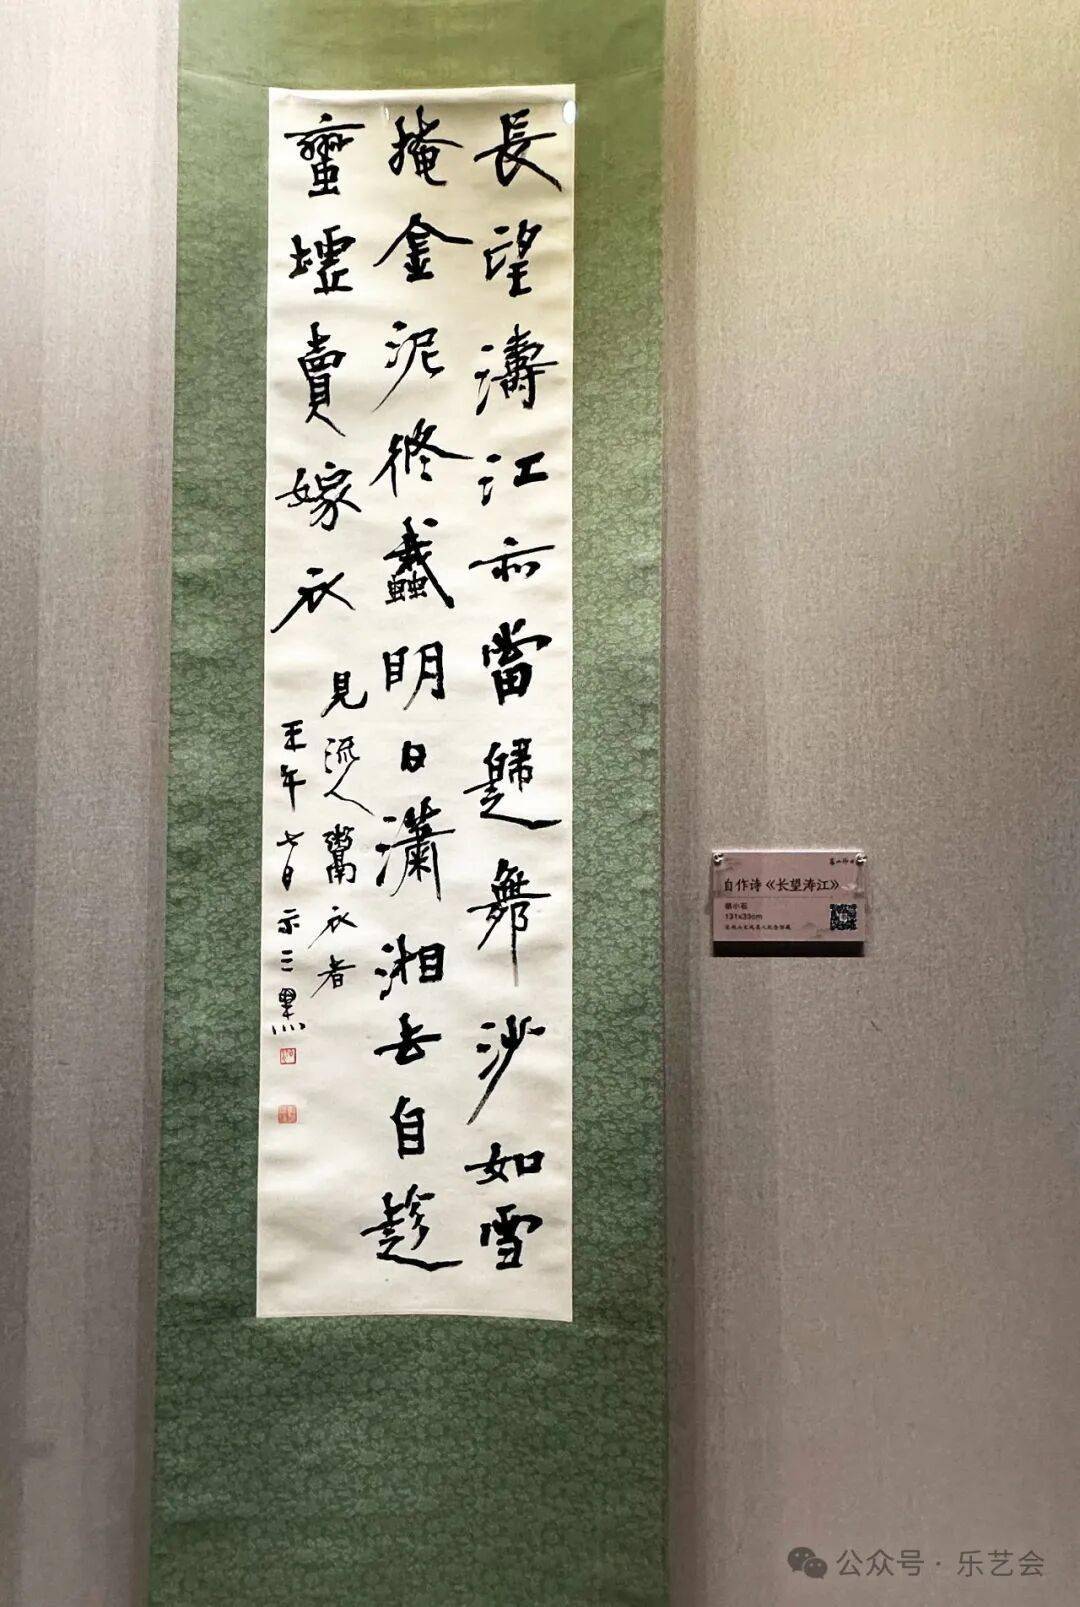 長望濤江亦當歸舞沙如雪
掩金泥終蠶明日瀟湘去自趁
蠻墟賣嫁衣
見流人鬻衣者
壬午七月示三黑
自作诗《长望涛江》
胡小石
131x33cm
公众号·乐艺会